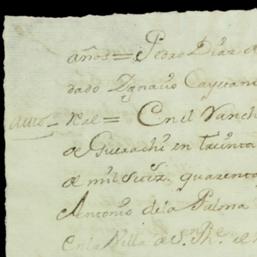 años = Pedro Dias
dado Ygnacio Cayetano
auto Real = En el Ranch
de Guarachi en treinta
de mil setez. quarenta
Antonio de la Paloma
en la Villa de S.